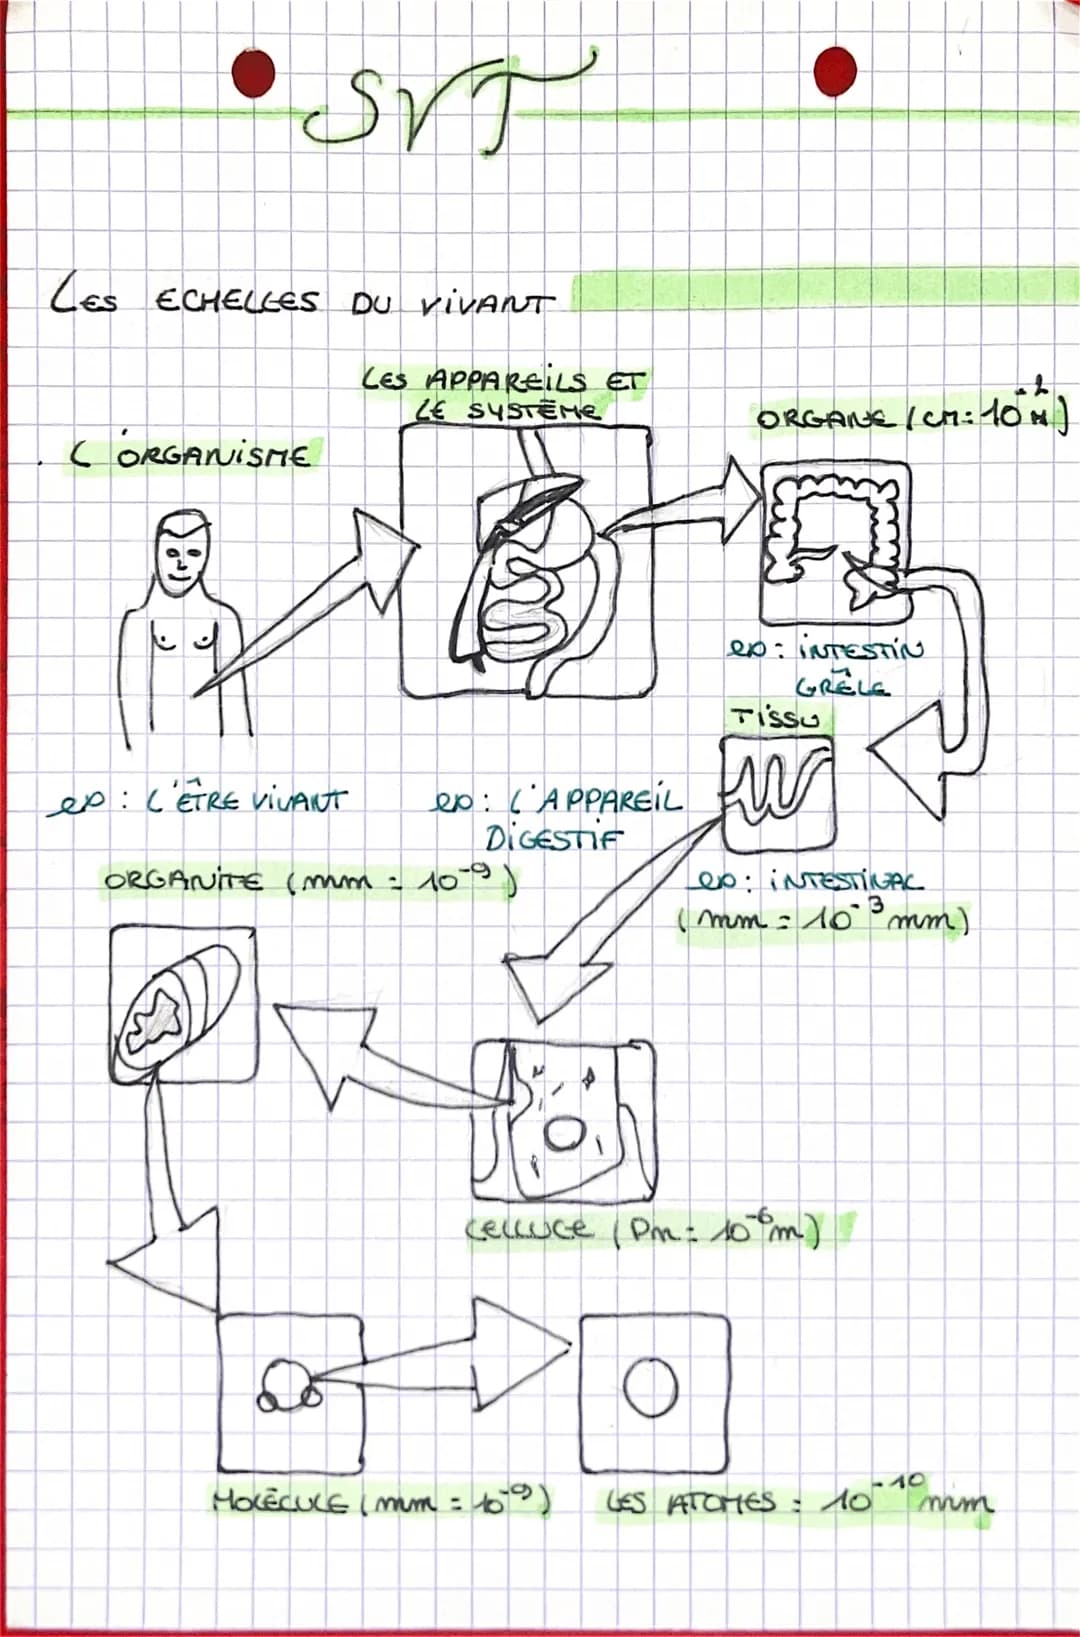 SVT
LES ECHELLES DU VIVANT
LES APPAREILS ET
LE SYSTÈME
ORGANE (cm = 10⁻² M)
. L'ORGANISME
ex : INTESTIN
GRÊLE
TISSU
ex : L'ÊTRE VIVANT
ex : L'APPAREIL
DIGESTIF
ORGANITE (mm = 10⁻⁹)
ex : INTESTINAL
(mm = 10⁻³ mm)
CELLULE (Pm = 10⁻⁶m)
MOLÉCULE (mm = 10⁻⁹)
LES ATOMES : 10⁻¹⁰ mm